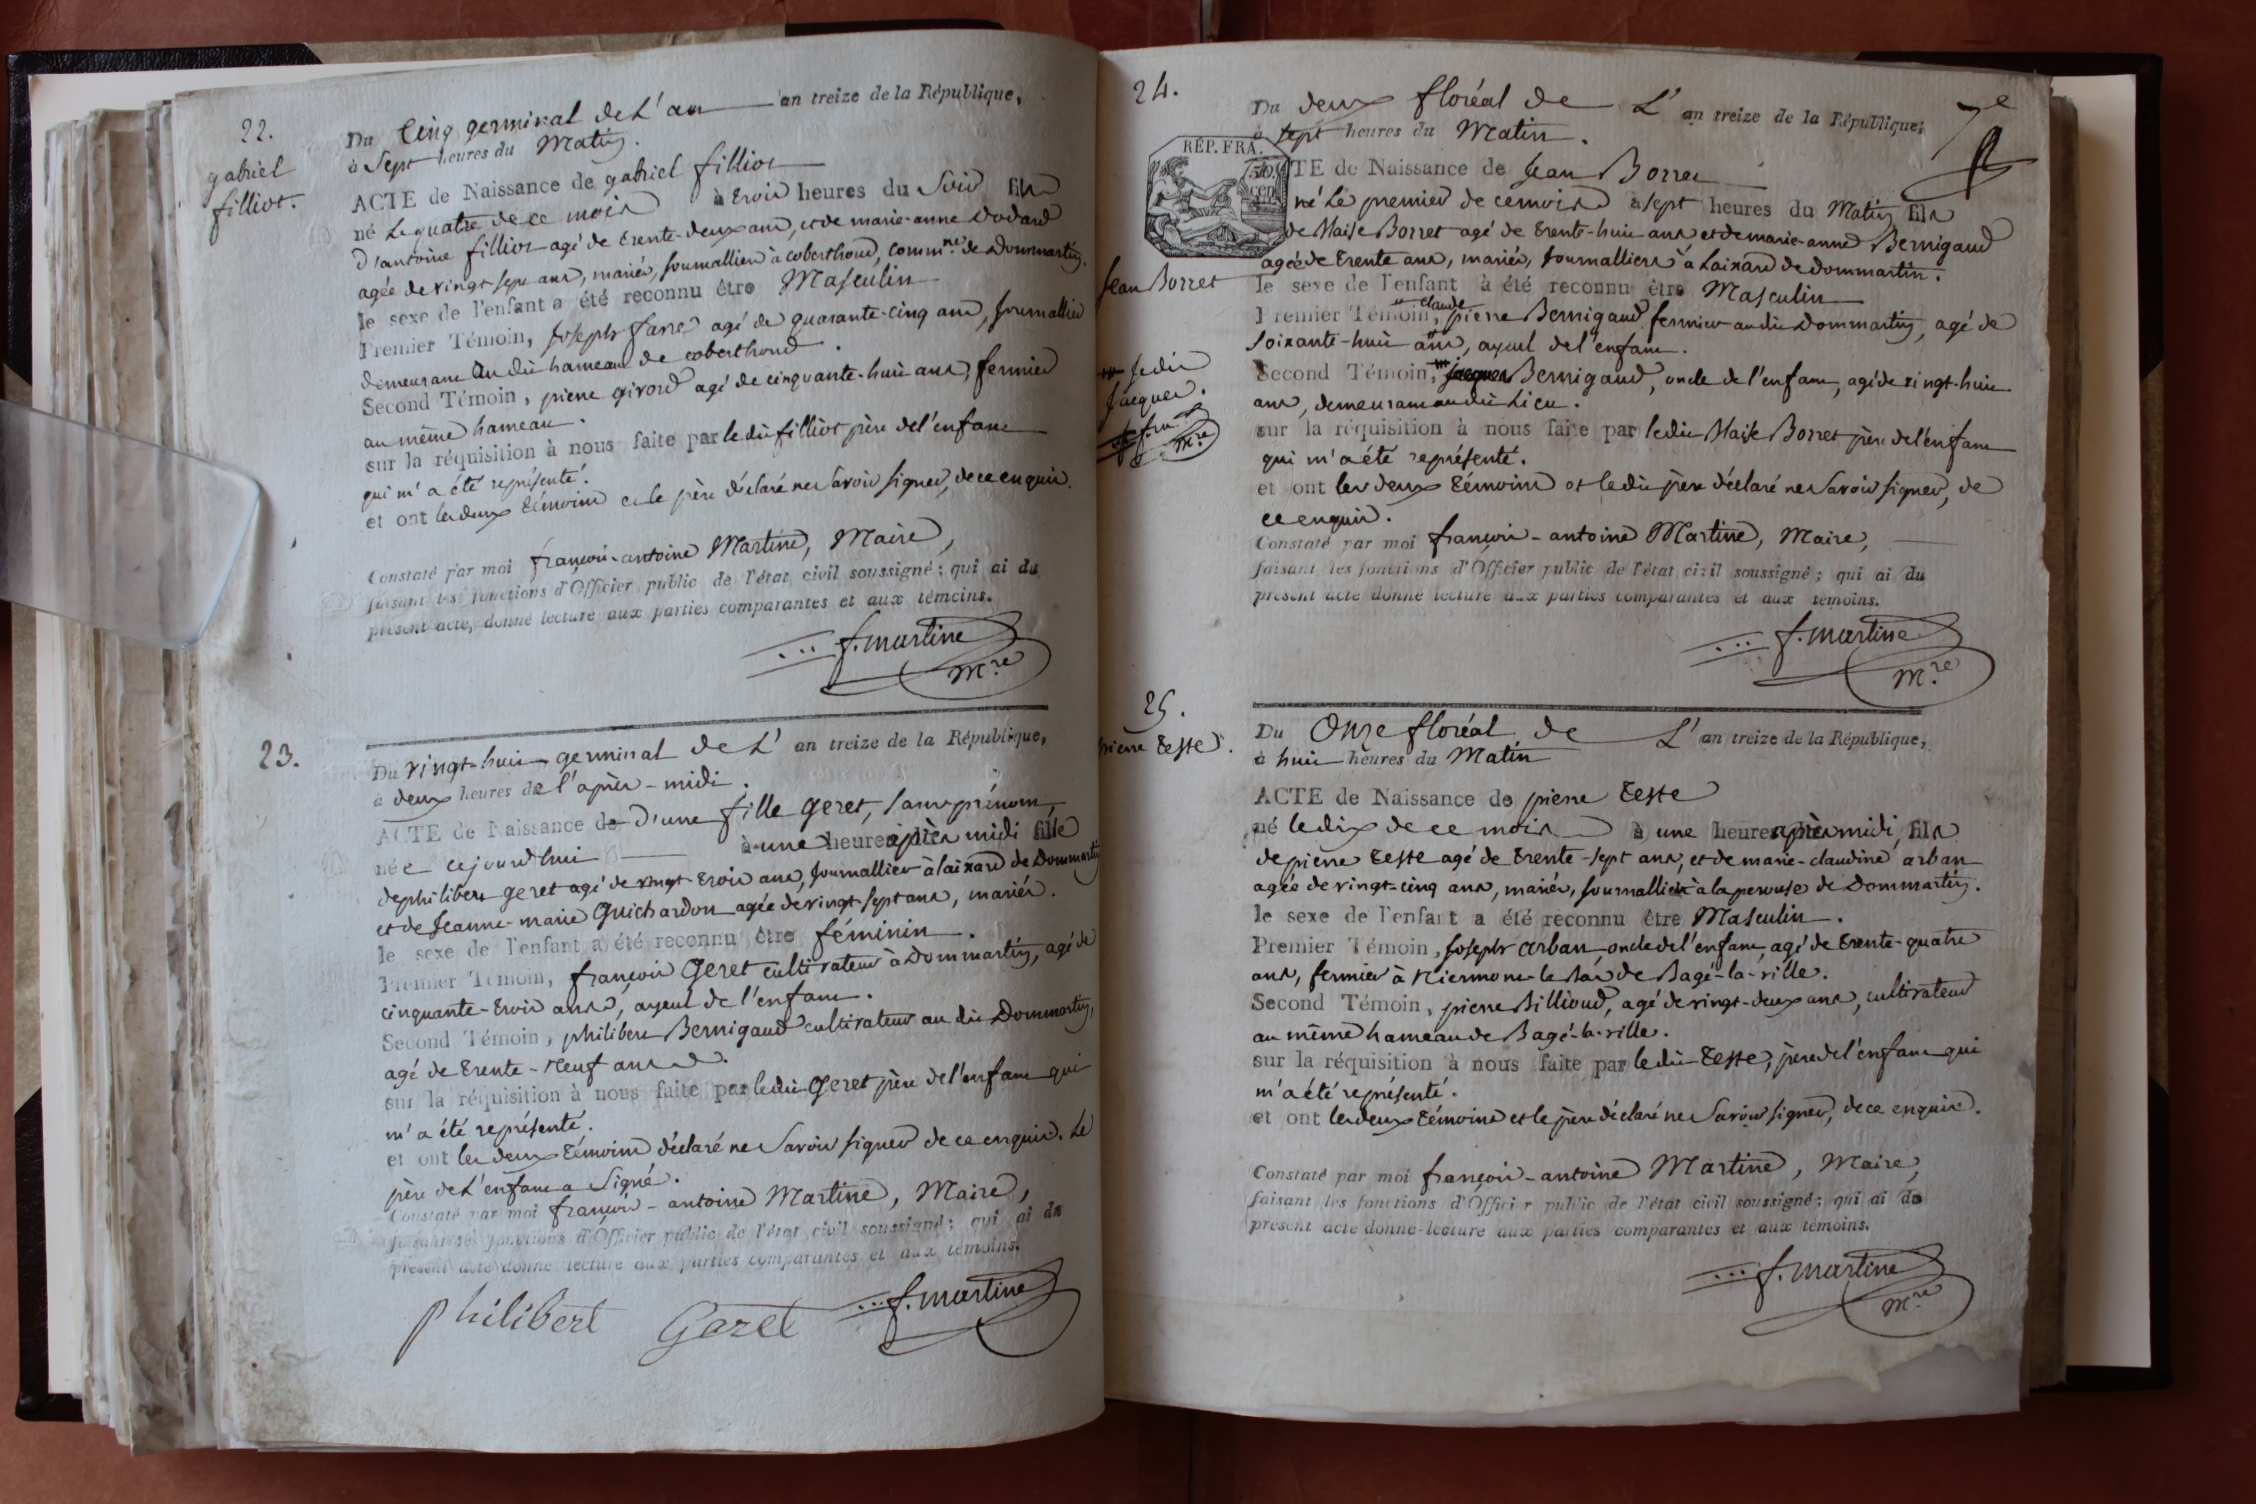 22.
gabriel
filliot.
Du Cinq germinal de L'an an treize de la République,
à Sept heures du Matin.
ACTE de Naissance de gabriel filliot
né Le quatre de ce mois à trois heures du Soir fils
d'antoine filliot agé de trente-deux ans, et de marie-anne Dodard
agée de vingt sept ans, mariés, journalliers à coberthoud, commne de Dommartin.
le sexe de l'enfant a été reconnu être Masculin
Premier Témoin, joseph farre agé de quarante-cinq ans, journallier
demeurant au dit hameau de coberthoud.
Second Témoin, pierre girord agé de cinquante-huit ans, fermier
au même hameau.
sur la réquisition à nous faite par le dit filliot père de l'enfant
qui m'a été représenté.
et ont les deux témoins et le père déclaré ne Savoir signer, de ce enquis.
Constaté par moi françois-antoine Martine, Maire,
faisant les fonctions d'Officier public de l'état civil soussigné; qui ai du
présent acte, donné lecture aux parties comparantes et aux témoins.
f. martine
M.re
23.
Du vingt-huit germinal de L' an treize de la République,
à deux heures de l'après-midi.
ACTE de Naissance de d'une fille geret, sans prénom,
née cejourd'hui à une heure après midi fille
de philibert geret agé de vingt trois ans, journallier à laixard de Dommartin
et de Jeanne-marie Guichardon agée de vingt-sept ans, mariés.
le sexe de l'enfant a été reconnu être féminin.
Premier Témoin, françois Geret cultivateur à Dommartin, agé de
cinquante-trois ans, ayeul de l'enfant.
Second Témoin, philibert Bernigaud cultivateur au dit Dommartin,
agé de trente-neuf ans.
sur la réquisition à nous faite par le dit Geret père de l'enfant qui
m'a été représenté.
et ont les deux témoins déclaré ne Savoir signer de ce enquis. Le
père de L'enfant a Signé.
Constaté par moi françois-antoine Martine, Maire,
faisant les fonctions d'Officier public de l'état civil soussigné; qui ai du
présent acte donné lecture aux parties comparantes et aux témoins.
Philibert Garet f. martine
24.
7e
Du deux floréal de L' an treize de la République,
à sept heures du Matin.
RÉP. FRA.
ACTE de Naissance de Jean Borret
né Le premier de ce mois à sept heures du Matin fils
de Blaise Borret agé de trente-huit ans et de marie-anne Bernigaud
agée de trente ans, mariés, journalliers à Laixard de Dommartin.
Jean Borret
le sexe de l'enfant à été reconnu être Masculin
claude
Premier Témoin, pierre Bernigaud fermier au dit Dommartin, agé de
soixante-huit ans, ayeul de l'enfant.
Second Témoin, jacques Bernigaud, oncle de l'enfant, agé de vingt-huit
ans, demeurant au dit Lieu.
le dit
Jacques.
M.re
sur la réquisition à nous faite par le dit Blaise Borret père de l'enfant
qui m'a été représenté.
et ont les deux témoins et le dit père déclaré ne Savoir signer, de
ce enquis.
Constaté par moi françois-antoine Martine, Maire,
faisant les fonctions d'Officier public de l'état civil soussigné; qui ai du
présent acte donné lecture aux parties comparantes et aux témoins.
f. martine
M.re
25.
pierre teste.
Du Onze floréal de L' an treize de la République,
à huit heures du Matin
ACTE de Naissance de pierre teste
né le dix de ce mois à une heure après midi, fils
de pierre teste agé de trente-sept ans, et de marie-claudine arban
agée de vingt-cinq ans, mariés, journalliers à la perouse de Dommartin.
le sexe de l'enfant a été reconnu être Masculin.
Premier Témoin, Joseph arban, oncle de l'enfant, agé de trente-quatre
ans, fermier à niermont-le bas de Bagé-la-ville.
Second Témoin, pierre Billioud, agé de vingt-deux ans, cultivateur
au même hameau de Bagé-la-ville.
sur la réquisition à nous faite par le dit teste, père de l'enfant qui
m'a été représenté.
et ont les deux témoins et le père déclaré ne Savoir signer, de ce enquis.
Constaté par moi françois-antoine Martine, Maire,
faisant les fonctions d'Officier public de l'état civil soussigné; qui ai du
présent acte donné lecture aux parties comparantes et aux témoins.
f. martine
M.re